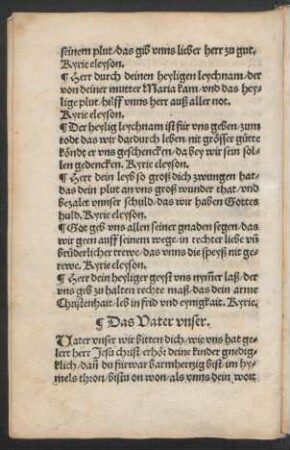 seinem plut / das gib vnns lieber herr zu gut.
Kyrie eleyson.
¶ Herr durch deinen heyligen leychnam / der
von deiner mutter Maria kam / vnd das hey-
lige plut / hilff vnns herr auß aller not.
Kyrie eleyson.
¶ Der heylig leychnam ist für vns geben / zum
todt das wir dardurch leben / nit grösser gütte
köndt er vns geschencken / da bey wir sein sol-
len gedencken. Kyrie eleyson.
¶ Herr dein leyb so groß dich zwungen hat /
das dein plut an vns groß wunder that / vnd
bezalet vnnser schuld / das wir haben Gottes
huld. Kyrie eleyson.
¶ Got geb vns allen seiner gnaden segen / das
wir geen auff seinem wege / in rechter liebe vñ
brüderlicher trewe / das vnns die speyß nit ge-
rewe. Kyrie eleyson.
¶ Herr dein heyliger geyst vns nym̃er laß / der
vns geb zu halten rechte maß / das dein arme
Christenhait / leb in frid vnd eynigkait. Kyrie.
¶ Das Vater vnser.
Vater vnser wir bitten dich / wie vns hat ge-
lert herr Jesu christ / erhöt deine kinder gnedig-
klich / dañ du fürwar barmhertzig bist / im hy-
mels thron / bistu on won / als vnns dein wort